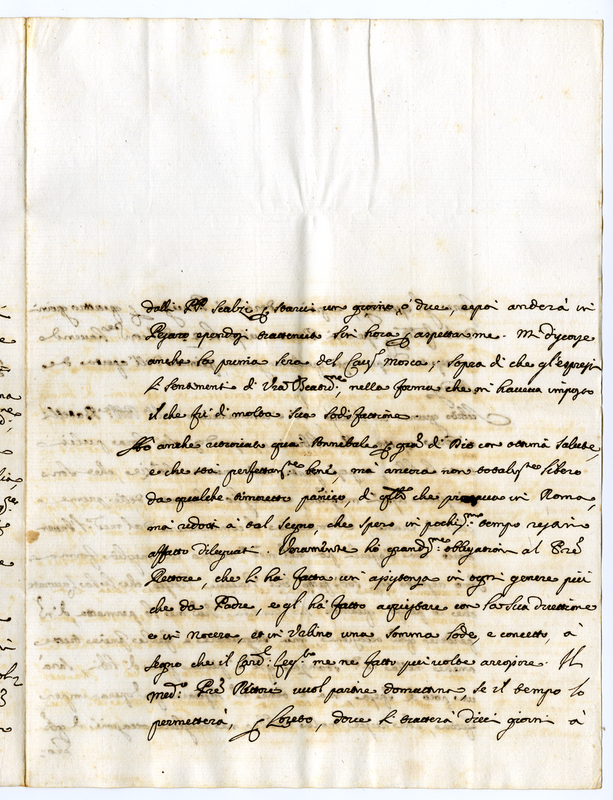 dalli PP. Scalzi p starvi un giorno, ò due, e poi anderà in
Pesaro essendosi trattenuto sin hora p aspettarme. Mi discorse
anche la prima sera del Cav.r Mosca; sopra di che gl'espressi
li sentimenti di Vra Beatd.ne, nella forma che mi haveva imposto
il che fù di molta sua sodisfazione.
Ho anche ritrovato quà Annibale p gra di Dio con ottima salute,
e che stà perfettam.te bene, mà ancora non totalm.te libero
da qualche timoretto panico, di q.lli che pativa in Roma,
mà ridotti à tal segno, che spero in pochiss.mo tempo restino
affatto dileguati. Veramente hò grandiss.me obligationi al Pre
Rettore, che li hà fatta un'assistenza in ogni genere più
che da Padre, e gl'hà fatto acquistare con la sua direttione
e in Nocera, et in Urbino una somma lode, e concetto, à
segno che il Card.le me ne fatto più volte. Il
med.o Pre Rettore vuol partire domattina, se il tempo lo
permetterà, p Loreto, dove si tratterà dieci giorni à